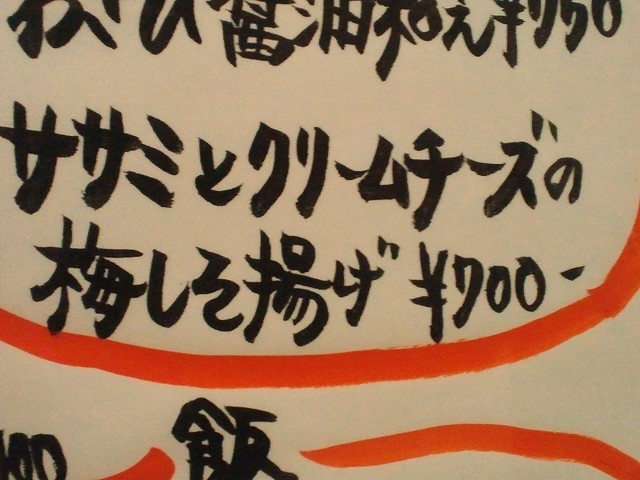 わさび醤油和え ¥750
ササミとクリームチーズの
梅しそ揚げ ¥700-
飯